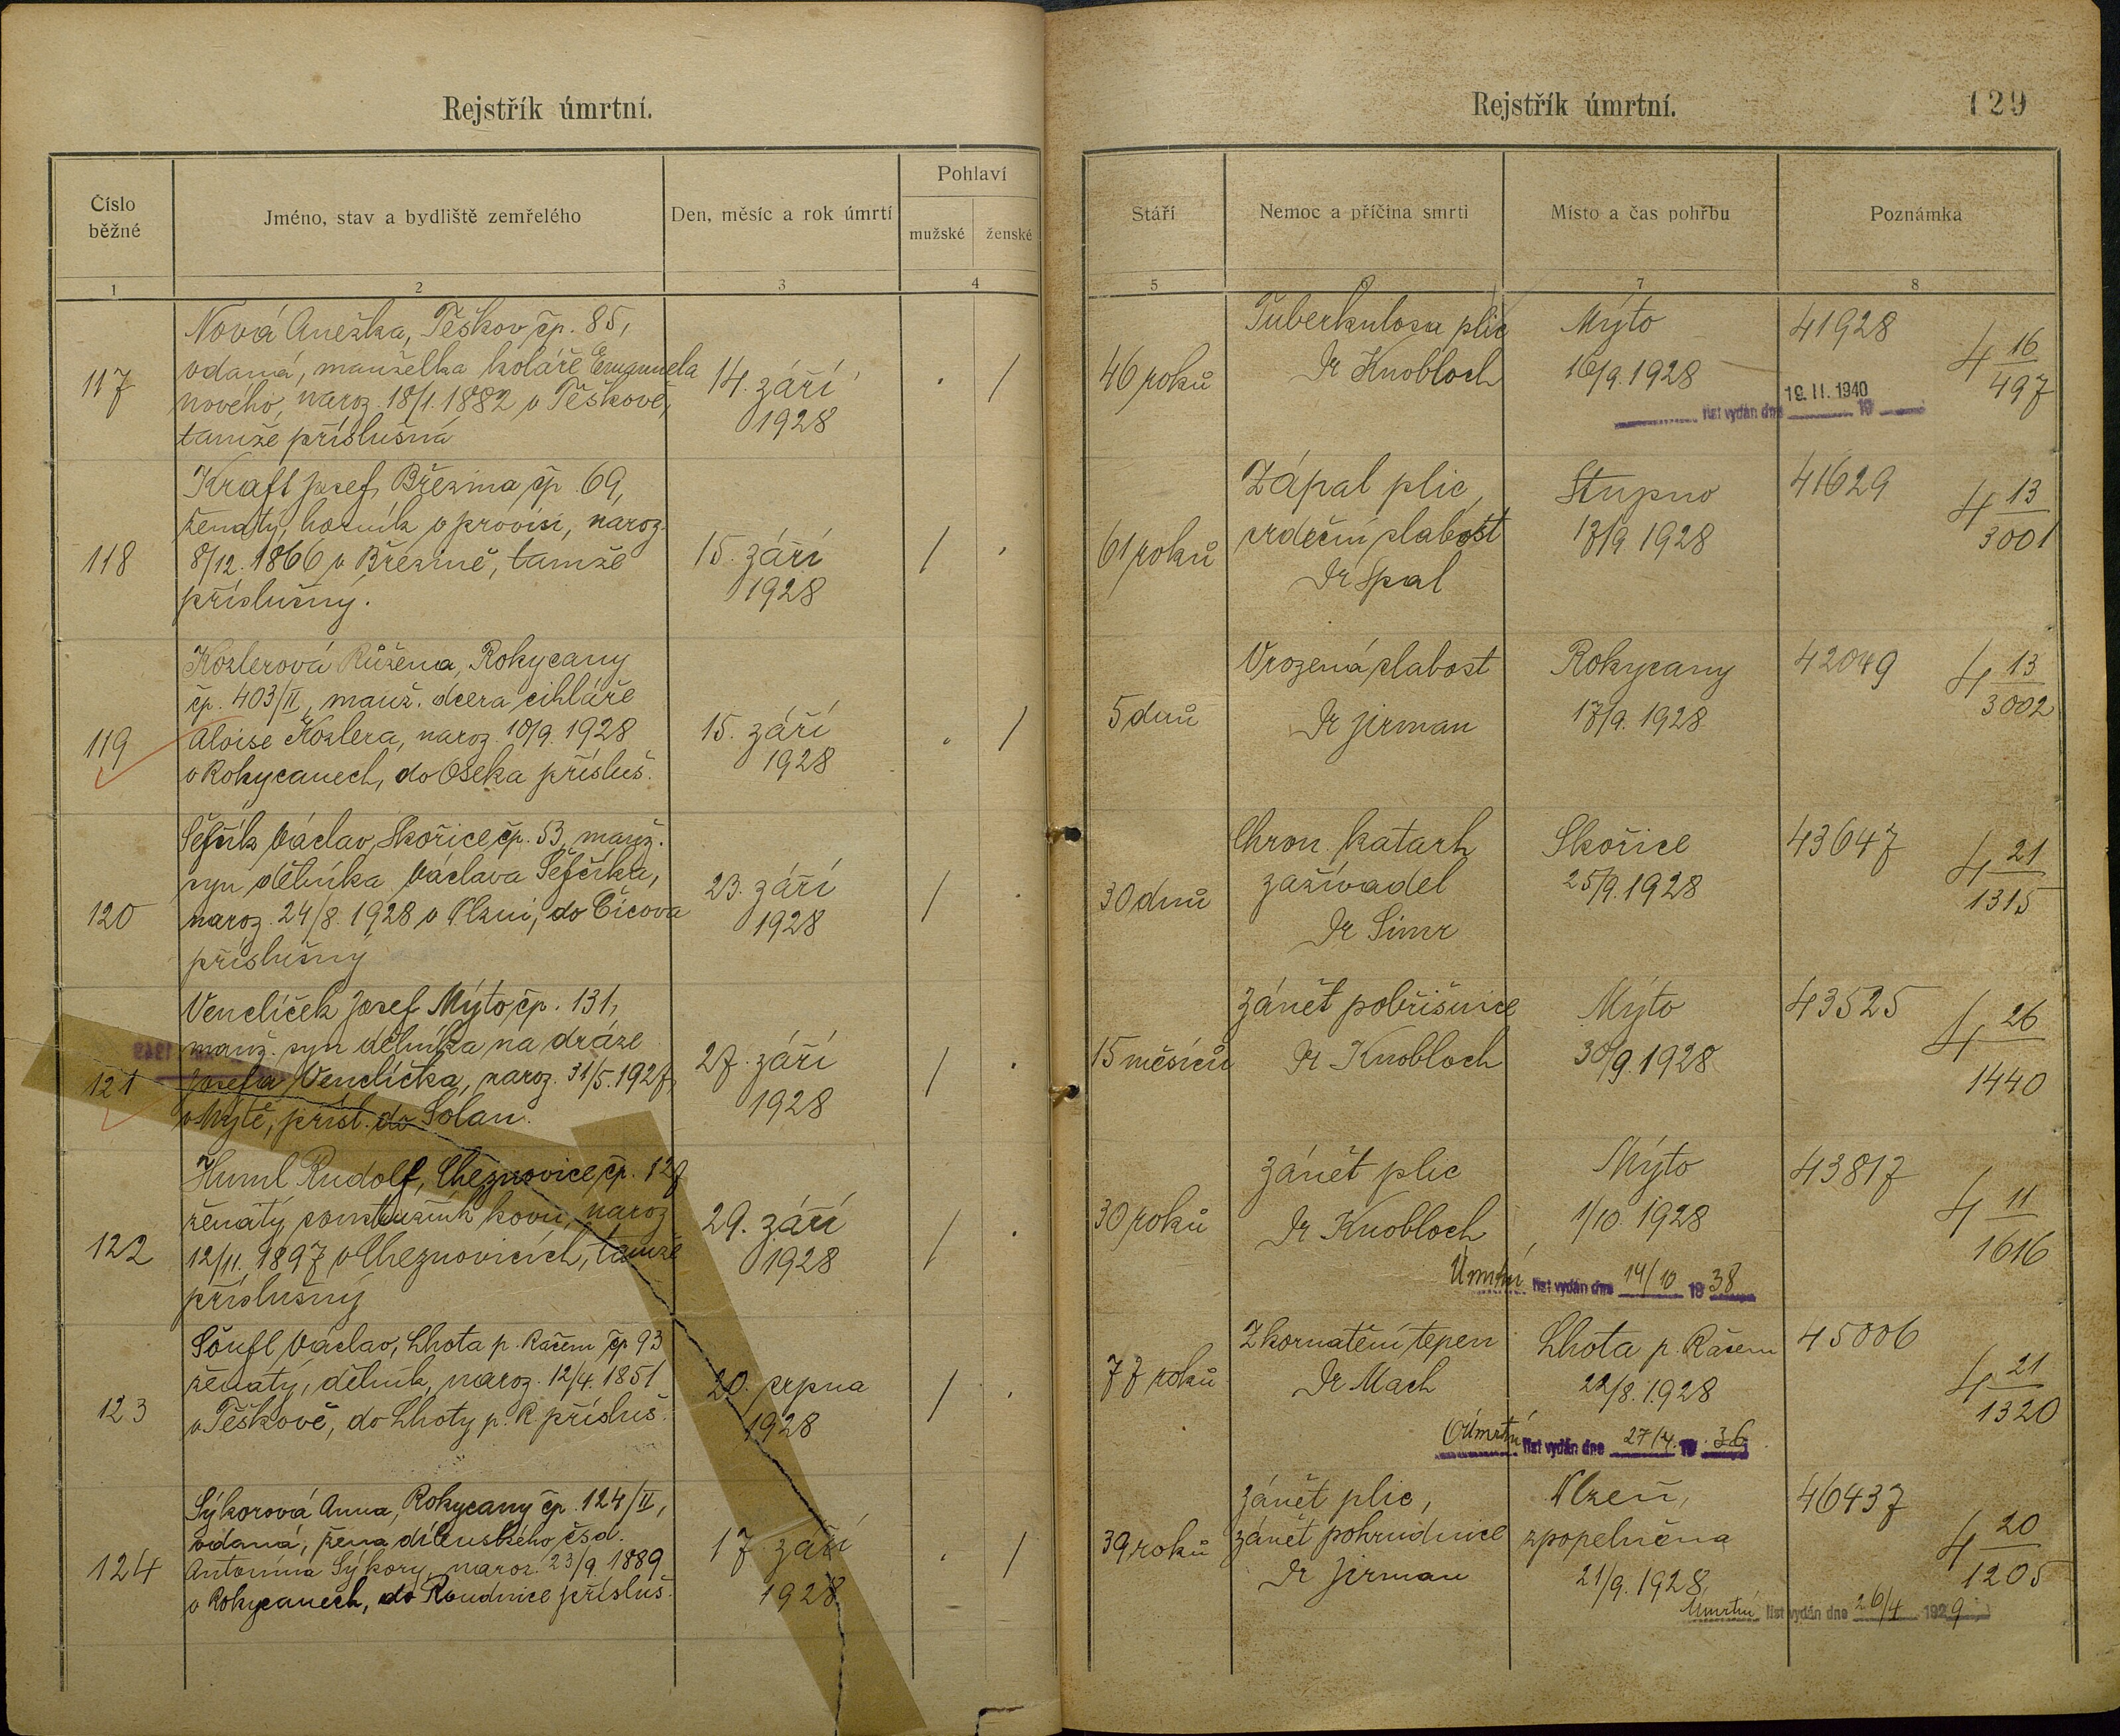 Rejstřík úmrtní.
Číslo běžné
Jméno, stav a bydliště zemřelého
Den, měsíc a rok úmrtí
Pohlaví
mužské ženské
1 2 3 4
117
Nová Anežka, Těškov čp. 85,
vdaná, manželka koláře Emanuela
Nového, naroz. 18/1. 1882 v Těškově,
tamže příslušná
14. září
1928
. /
118
Kraft Josef, Březina čp. 69,
ženatý, horník v provisi, naroz.
8/12. 1866 v Březině, tamže
příslušný.
15. září
1928
/ .
119
Kozlerová Růžena, Rokycany
čp. 403/II, manž. dcera cihláře
Aloise Kozlera, naroz. 10/9. 1928
v Rokycanech, do Oseka přísluš.
15. září
1928
. /
120
Šefčík Václav, Skořice čp. 53, manž.
syn dělníka Václava Šefčíka,
naroz. 24/8. 1928 v Plzni, do Číčova
příslušný
23. září
1928
/ .
121
Venclíček Josef Mýto čp. 131,
manž. syn dělníka na dráze
Josefa Venclíčka, naroz. 31/5. 1927,
v Mýtě, přísl. do Solan.
27. září
1928
/ .
122
Huml Rudolf, Cheznovice čp. 127
ženatý, soustružník kovů, naroz
12/11. 1897 v Cheznovicích, tamže
příslušný
29. září
1928
/ .
123
Šoufl Václav, Lhota p. Račem čp 93
ženatý, dělník, naroz. 12/4. 1851
v Těškově, do Lhoty p. R. přísluš.
20. srpna
1928
/ .
124
Sýkorová Anna, Rokycany čp. 124/II,
vdaná, žena dílenského čsd.
Antonína Sýkory, naroz. 23/9. 1889
v Rokycanech, do Roudnice přísluš.
17. září
1928
. /
Rejstřík úmrtní.
129
Stáří
Nemoc a příčina smrti
Místo a čas pohřbu
Poznámka
5 7 8
46 roků
Tuberkulosa plic
Dr Knobloch
Mýto
16/9. 1928
41928
4 16/497
list vydán dne 19. II. 1940 19
61 roků
Zápal plic,
srdeční slabost
Dr Spal
Stupno
17/9. 1928
41629
4 13/3001
5 dnů
Vrozená slabost
Dr Jirman
Rokycany
17/9. 1928
42049
4 13/3002
30 dnů
Chron. katarh
zažívadel
Dr Šimr
Skořice
25/9. 1928
43647
4 21/1315
15 měsíců
Zánět pobřišnice
Dr Knobloch
Mýto
30/9. 1928
43525
4 26/1440
30 roků
Zánět plic
Dr Knobloch
Mýto
1/10. 1928
43817
4 11/1616
Úmrtní list vydán dne 14/10 19 38
77 roků
Zkornatění tepen
Dr Mach
Lhota p. Račem
22/8. 1928
45006
4 21/1320
Úmrtní list vydán dne 27/4. 19 36
39 roků
Zánět plic,
zánět pohrudnice
Dr Jirman
Plzeň,
zpopelněna
21/9. 1928
46437
4 20/1205
Úmrtní list vydán dne 26/4 1929